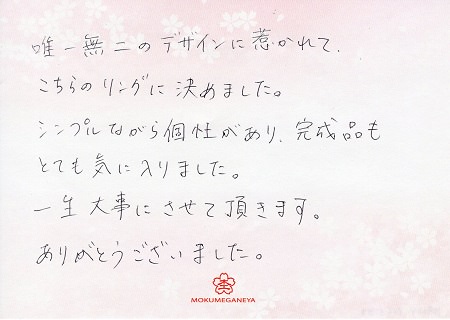 唯一無二のデザインに惹かれて、
こちらのリングに決めました。
シンプルながら個性があり、完成品も
とても気に入りました。
一生大事にさせて頂きます。
ありがとうございました。
MOKUMEGANEYA